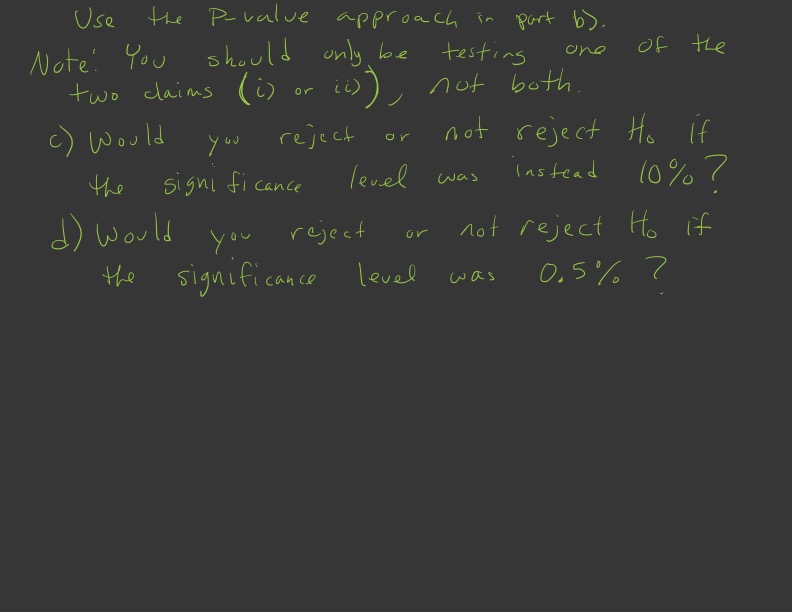 Use the P-value approach in part b).
Note: You should only be testing one of the
two claims (i) or ii)), not both.
c) Would you reject or not reject H₀ if
the significance level was instead 10%?
d) Would you reject or not reject H₀ if
the significance level was 0.5%?